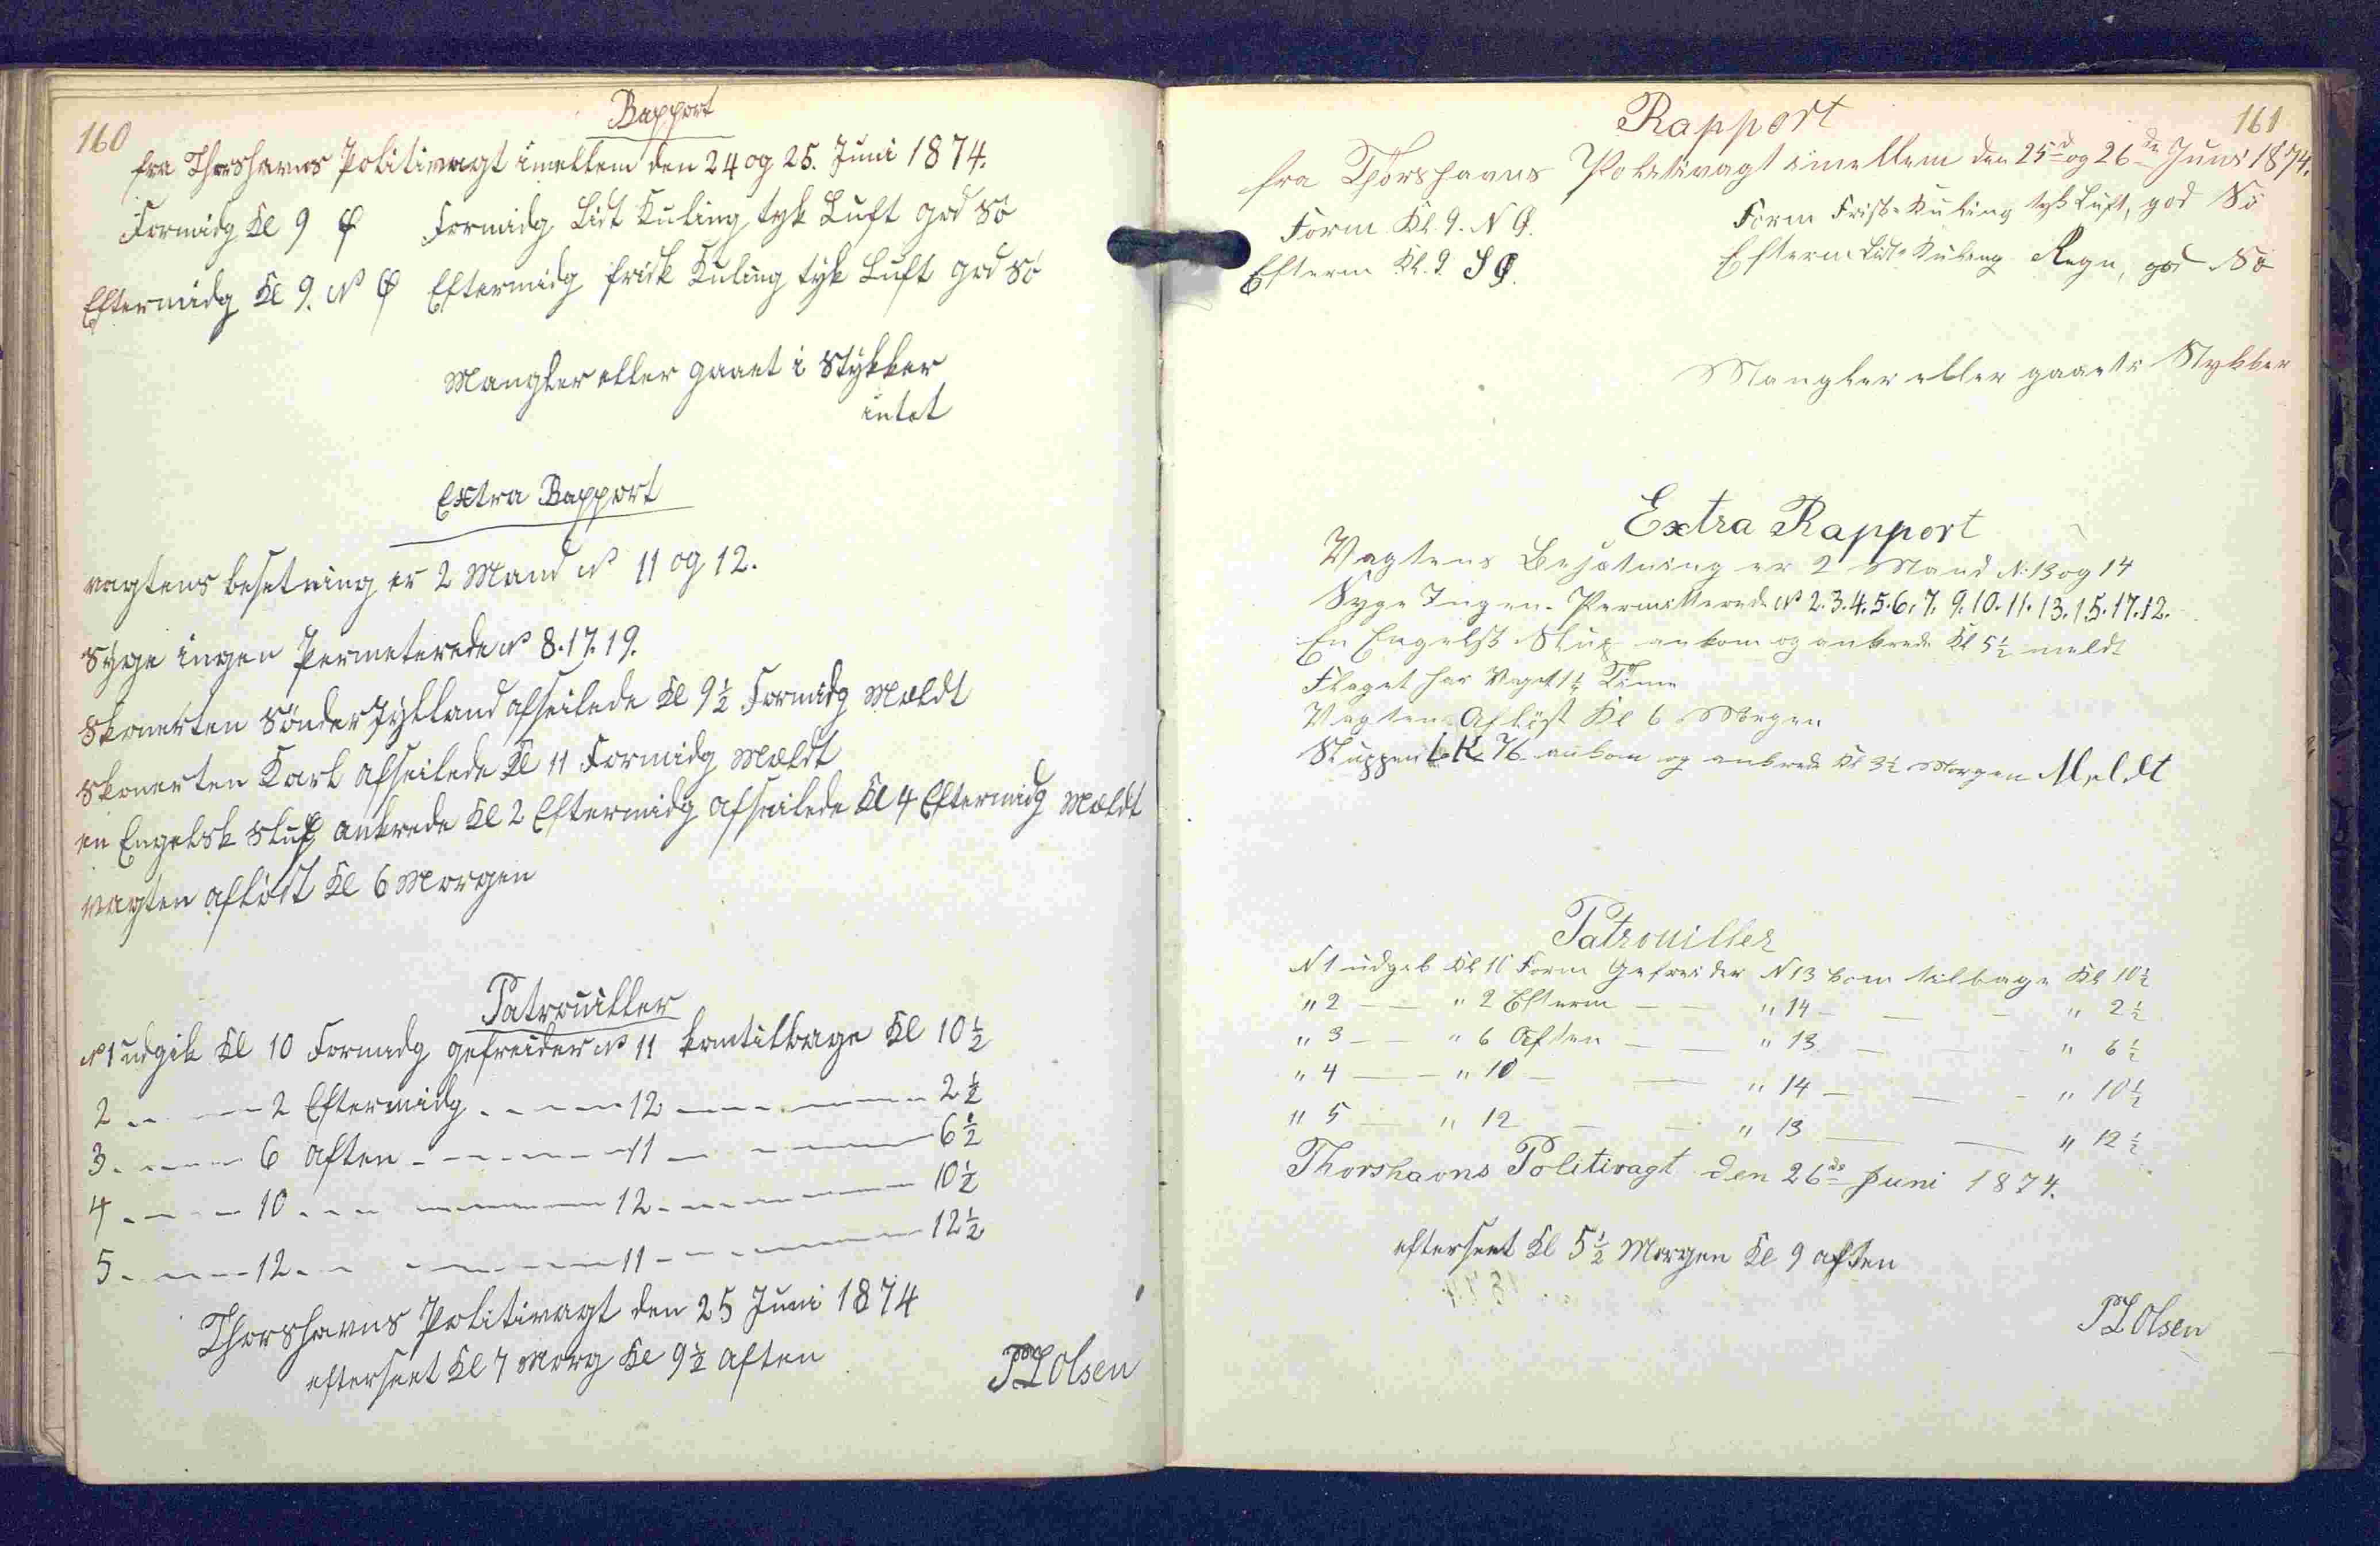 160
Rapport
fra Thorshavns Politivagt imellem den 24 og 25. Juni 1874.
Formidg Kl 9 Ø Formidg Lidt Kuling tyk Luft god Sö
Eftermidg Kl 9. N Ø Eftermidg frisk Kuling tyk Luft god Sö
Mangler eller gaaet i Stykker
intet
Extra Rapport
vagtens besetning er 2 Mand No 11 og 12.
Syge ingen Permeterede No 8. 17. 19.
Skonerten Sönder Jylland afseilede Kl 9½ Formidg Mældt
Skonerten Karl afseilede Kl 11 Formidg Mældt
en Engelsk Slup ankrede Kl 2 Eftermidg afseilede Kl 4 Eftermidg Mældt
vagten aflöst Kl 6 Morgen
Patrouiller
No 1 udgik Kl 10 Formidg gefreider No 11 kom tilbage Kl 10½
2 — — 2 Eftermidg — — 12 — — 2½
3 — — 6 Aften — — 11 — — 6½
4 — — 10 — — 12 — — 10½
5 — — 12 — — 11 — — 12½
Thorshavns Politivagt den 25 Juni 1874
efterseet Kl 7 Morg Kl 9½ Aften
PL Olsen
161
Rapport
fra Thorshavns Politivagt imellem den 25d og 26de Juni 1874.
Form Kl. 9. N Ø. Form Friske Kuling tyk Luft, god Sö
Efterm Kl. 9 S Ø. Efterm Lidt Kuling Regn, god Sö
Mangler eller gaaet i Stykker
Extra Rapport
Vagtens Besætning er 2 Mand N: 13 og 14
Syge Ingen. Permitterede No 2. 3. 4. 5. 6. 7. 9. 10. 11. 13. 15. 17. 12.
En Engelsk Slup ankom og ankrede Kl 5½ meldt
Flaget har Vaget 1½ Time
Vagten Aflöst Kl 6 Morgen
Sluppen LK 76 ankom og ankrede Kl 3½ Morgen Meldt
Patrouiller
N 1 udgik Kl 10 Form Gefreider N 13 kom tilbage Kl 10½
" 2 — — " 2 Efterm — — " 14 — — - " 2½
" 3 — — " 6 Aften — — " 13 — — " 6½
" 4 — — " 10 — — " 14 — — - " 10½
" 5 — " 12 — — " 13 — — " 12½
Thorshavns Politivagt den 26de Juni 1874.
efterseet Kl 5½ Morgen Kl 9 aften
PL Olsen